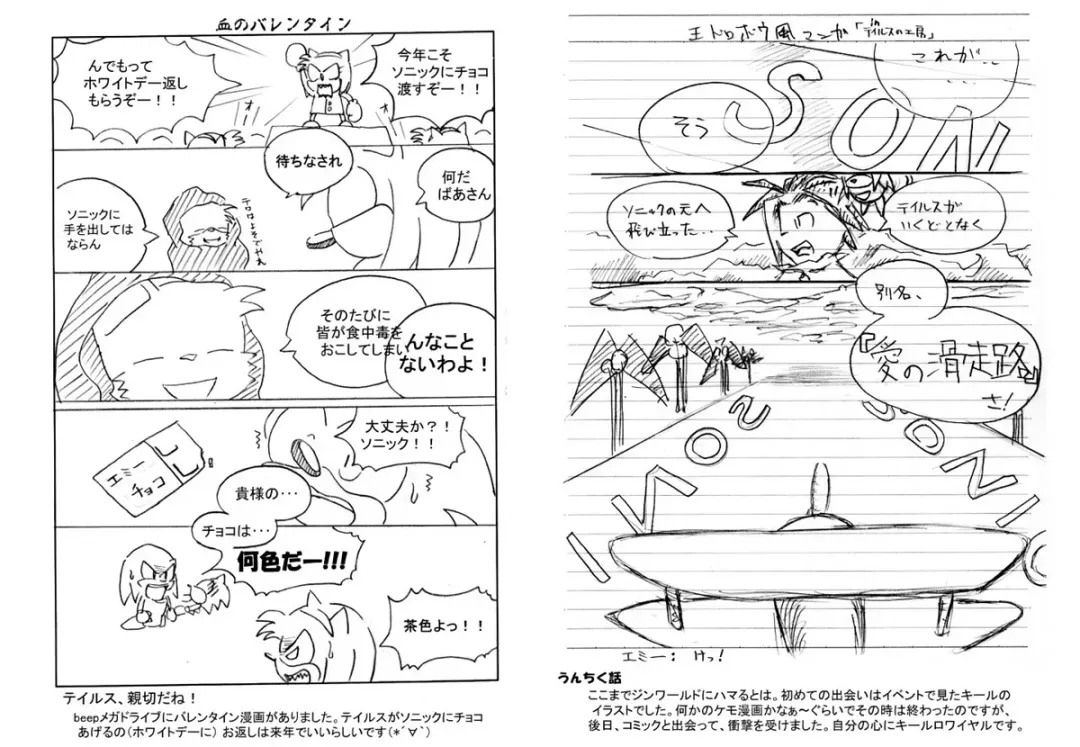 血のバレンタイン
今年こそ
ソニックにチョコ
渡すぞー！！
んでもって
ホワイトデー返し
もらうぞー！！
オー
オー
待ちなされ
何だ
ばあさん
ソニックに
手を出しては
ならん
テロはよそでやれ
そのたびに
皆が食中毒を
おこしてしまい
んなこと
ないわよ！
大丈夫か？！
ソニック！！
エミー
チョコ
貴様の・・・
チョコは・・・
何色だー!!!
茶色よっ！！
テイルス、親切だね！
beepメガドライブにバレンタイン漫画がありました。テイルスがソニックにチョコ
あげるの（ホワイトデーに）お返しは来年でいいらしいです（*´∀`）
王ドロボウ風マンガ「inテイルスの工房」
これが‥
・・・
そう
SON
テイルスが
いくどとなく
ソニックの元へ
飛び立った・・
別名、
『愛の滑走路』
さ！
エミー： けっ！
うんちく話
ここまでジンワールドにハマるとは。初めての出会いはイベントで見たキールの
イラストでした。何かのケモ漫画かなぁ～ぐらいでその時は終わったのですが、
後日、コミックと出会って、衝撃を受けました。自分の心にキールロワイヤルです。